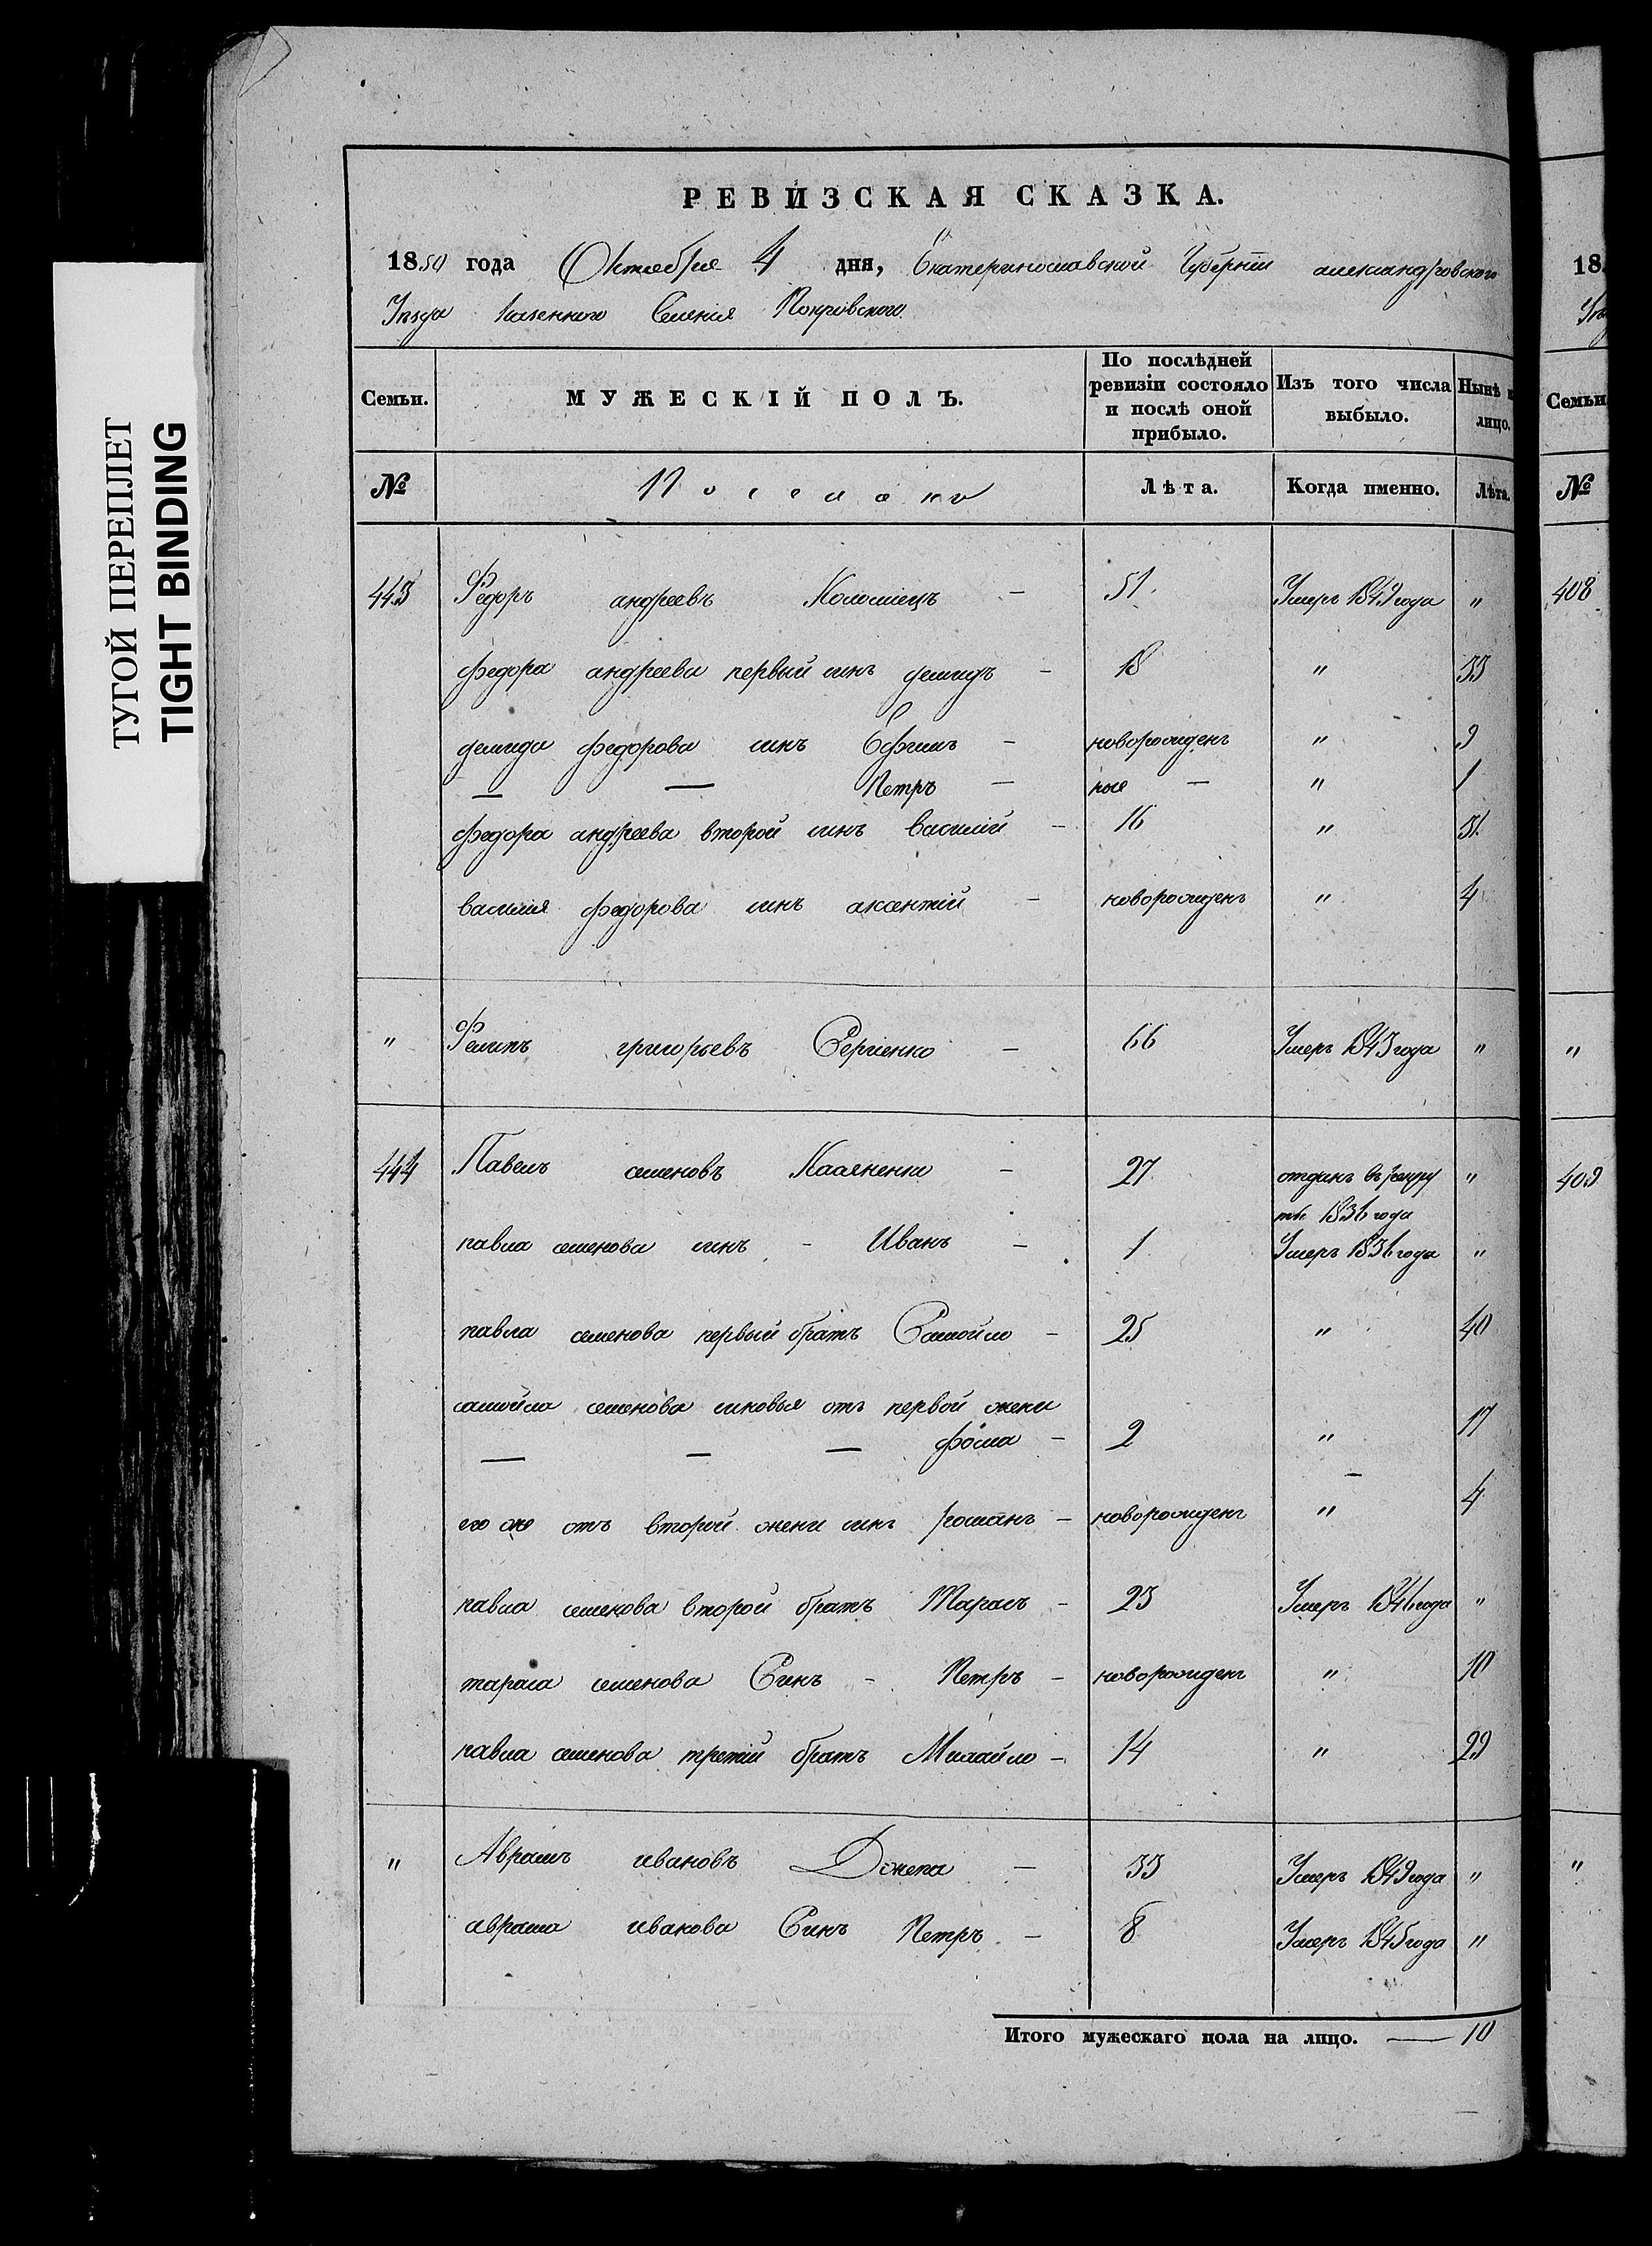 ТУГОЙ ПЕРЕПЛЕТ
TIGHT BINDING
РЕВИЗСКАЯ СКАЗКА.
1850 года Октября 4 дня, Екатеринославской Губернiи александровского
Уѣзда казенного Селенiя Покровского
Семьи. МУЖЕСКIЙ ПОЛЪ. По послѣдней ревизiи состояло и послѣ оной прибыло. Изъ того числа выбыло. Нынѣ лицо.
№ Поселянъ Лѣта. Когда именно. Лѣта.
443 Федоръ андреевъ Коломiецъ - 51. Умеръ 1849 года "
федора андреева первый синъ демидъ - 18 " 33
демида федорова синъ Ефимъ - новорожденъ " 9
— — Петръ - ные - " 1
федора андреева второй синъ василiй - 16 " 31.
василия федорова синъ аксентiй - новорожденъ " 4
" Филипъ григорьевъ Сергiенко - 66 Умеръ 1843 года "
444 Павелъ семеновъ - 27 отданъ въ рекру "
ты 1836 года
павла семенова синъ - Иванъ - 1 Умеръ 1836 года "
павла семенова первый братъ Самойло - 25 " 40
самойла семенова синовья отъ первой жени
— — — фома - 2 " 17
его же отъ второй жени синъ романъ - новорожденъ " 4
павла семенова второй братъ Тарасъ - 23 Умеръ 1846 года "
тараса семенова Синъ - Петръ - новорожденъ " 10
павла семенова третiй братъ Михайло - 14 " 29
" Аврамъ ивановъ Джепа - 33 Умеръ 1849 года "
аврама иванова Синъ Петръ - 8 Умеръ 1845 года "
Итого мужескаго пола на лицо. — 10
18
Семьи
№
408
"
409
"